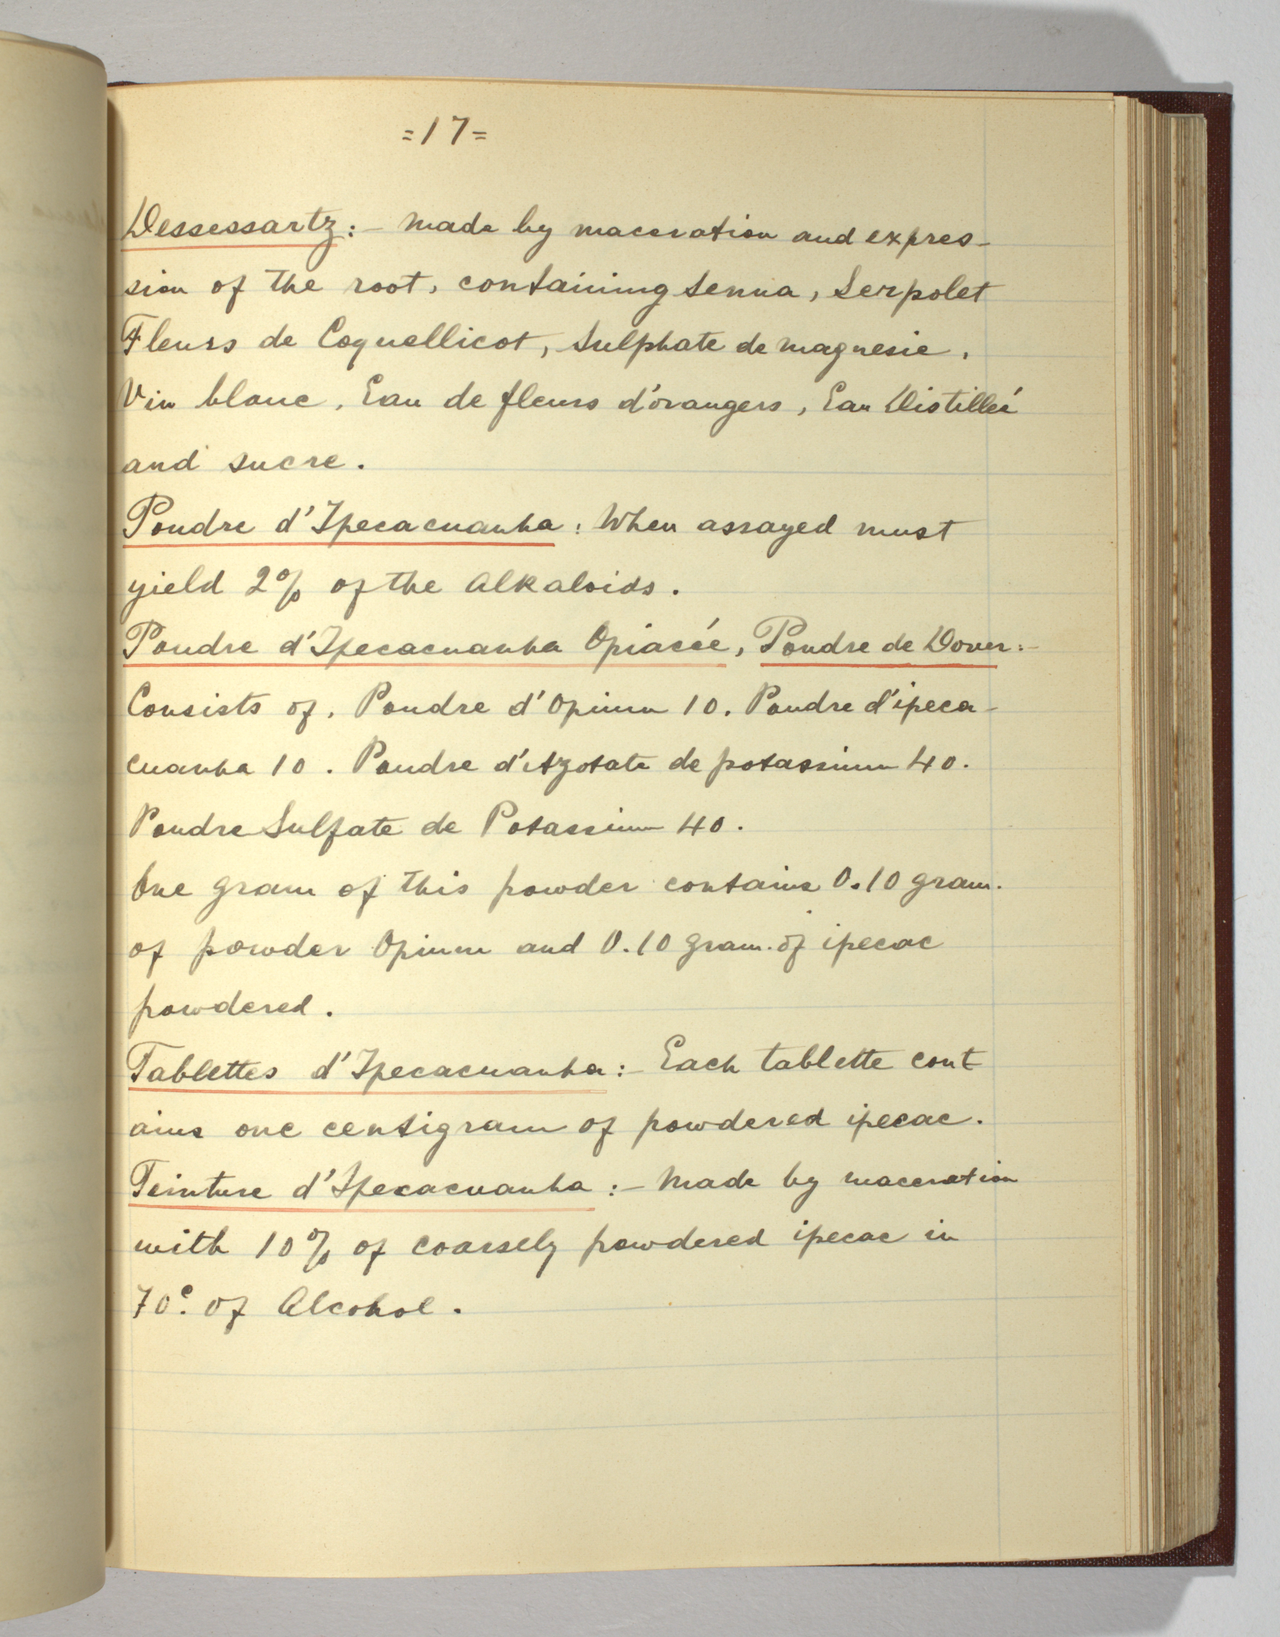 =17=
Dessessartz:- Made by maceration and expres-
sion of the root, containing Senna, Serpolet
Fleurs de Coquellicot, Sulphate de magnesie,
Vin blanc, Eau de fleurs d'orangers, Eau Distilleé
and sucre.
Poudre d'Ipecacuanha: When assayed must
yield 2% of the Alkaloids.
Poudre d'Ipecacuanha Opiacée, Poudre de Dover:-
Consists of, Poudre d'Opium 10. Poudre d'ipeca-
cuanha 10. Poudre d'Azotate de potassium 40.
Poudre Sulfate de Potassium 40.
One gram of this powder contains 0.10 gram.
of powder Opium and 0.10 gram. of ipecac
powdered.
Tablettes d'Ipecacuanha:- Each tablette cont
ains one centigram of powdered ipecac.
Teinture d'Ipecacuanha:- Made by maceration
with 10% of coarsely powdered ipecac in
70c. of Alcohol.